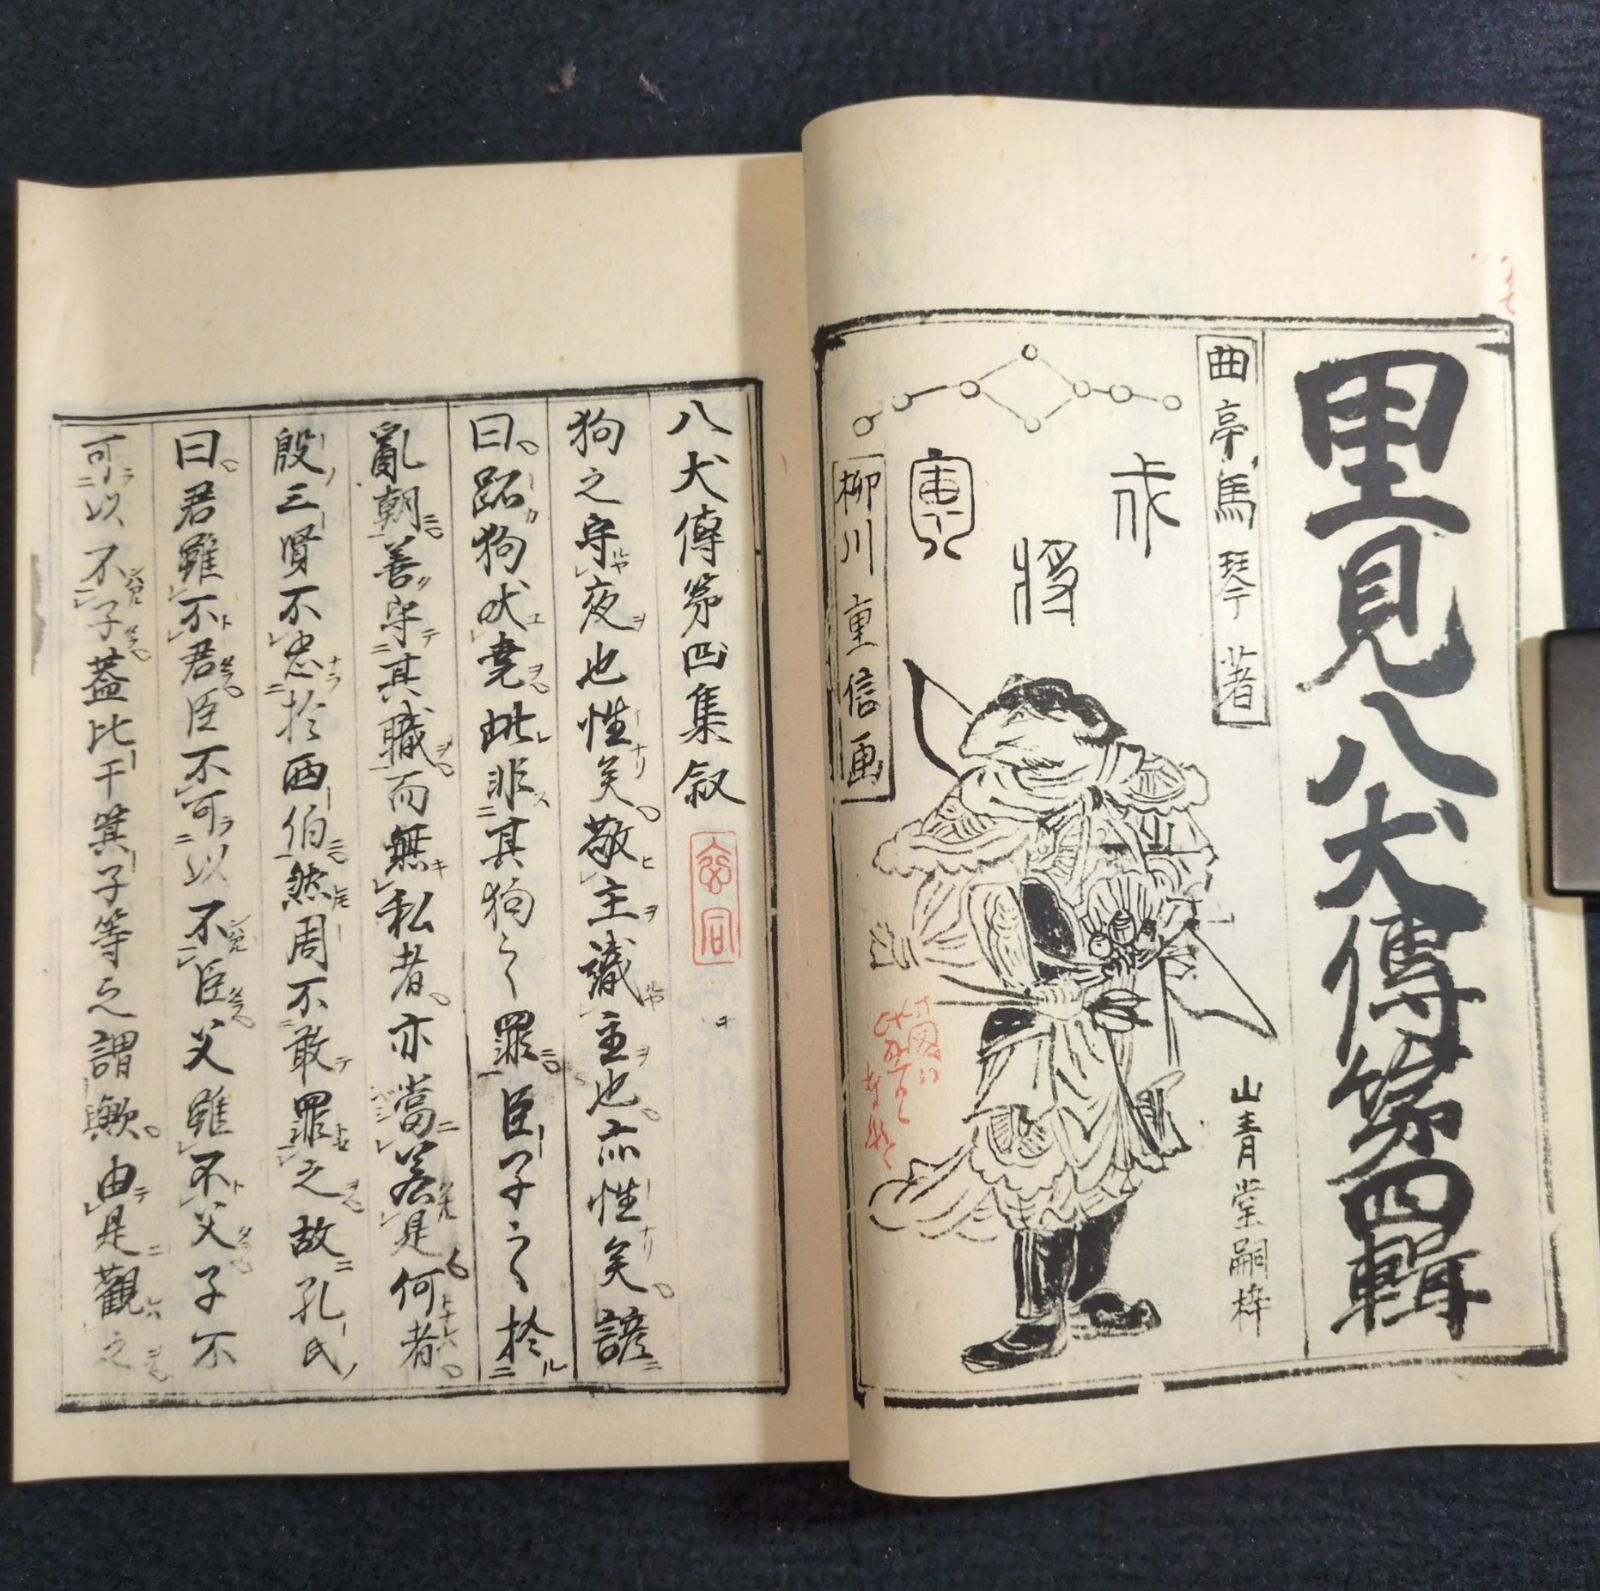 里見八犬傳第四輯
曲亭馬琴著
山青堂嗣梓
戌
将
寅
柳川重信画
八犬傳第四集叙
狗之守夜也性矣。敬主識主也。亦性矣。諺
曰。跖狗吠堯。此非其狗之罪。臣子之於
亂朝。善守其職。而無私者。亦當若是。何者。
殷三賢不忠於西伯。然周不敢罪之。故孔氏
曰。君雖不君。臣不可以不臣。父雖不父。子不
可以不子。蓋比干箕子等之謂歟。由是觀之